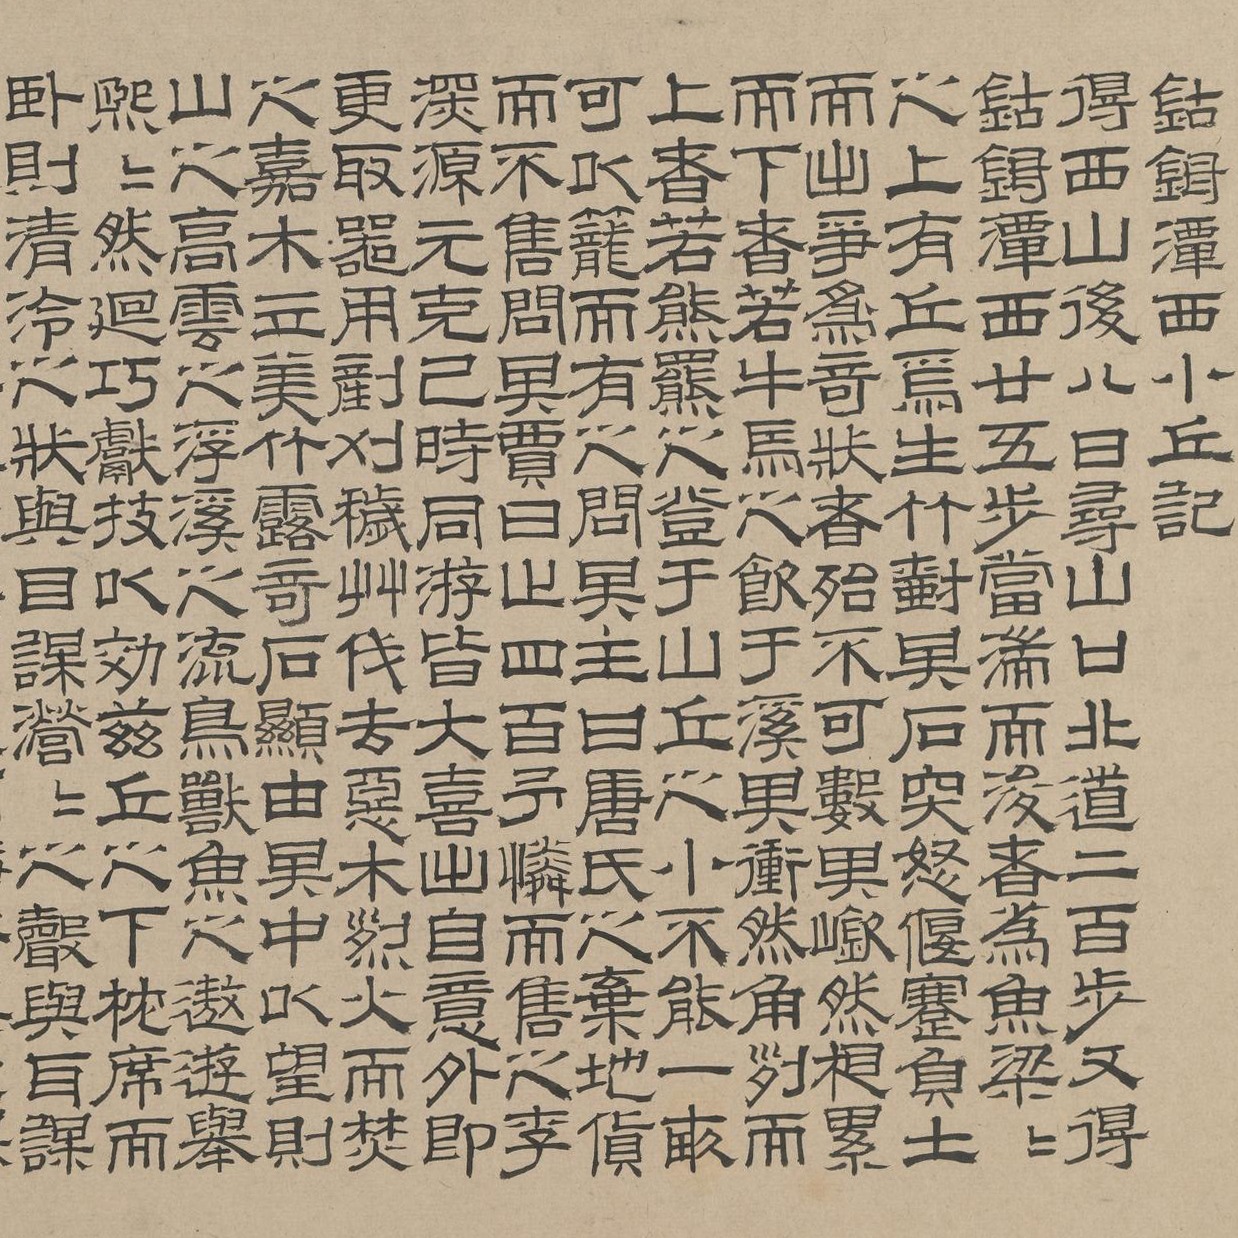 鈷鉧潭西小丘記
得西山後八日尋山口北道二百步又得
鈷鉧潭西廿五步當湍而浚者為魚梁〻
之上有丘焉生竹樹其石突怒偃蹇負土
而出爭為奇狀者殆不可數其嶔然相累
而下者若牛馬之飲于溪其衝然角列而
上者若熊羆之登于山丘之小不能一畝
可以籠而有之問其主曰唐氏之棄地貨
而不售問其賈曰止四百予憐而售之李
深源元克己時同游皆大喜出自意外即
更取器用剷刈穢艸伐去惡木烈火而焚
之嘉木立美竹露奇石顯由其中以望則
山之高雲之浮溪之流鳥獸魚之遨遊舉
熙〻然迴巧獻技以効茲丘之下枕席而
臥則清泠之狀與目謀瀯〻之聲與耳謀